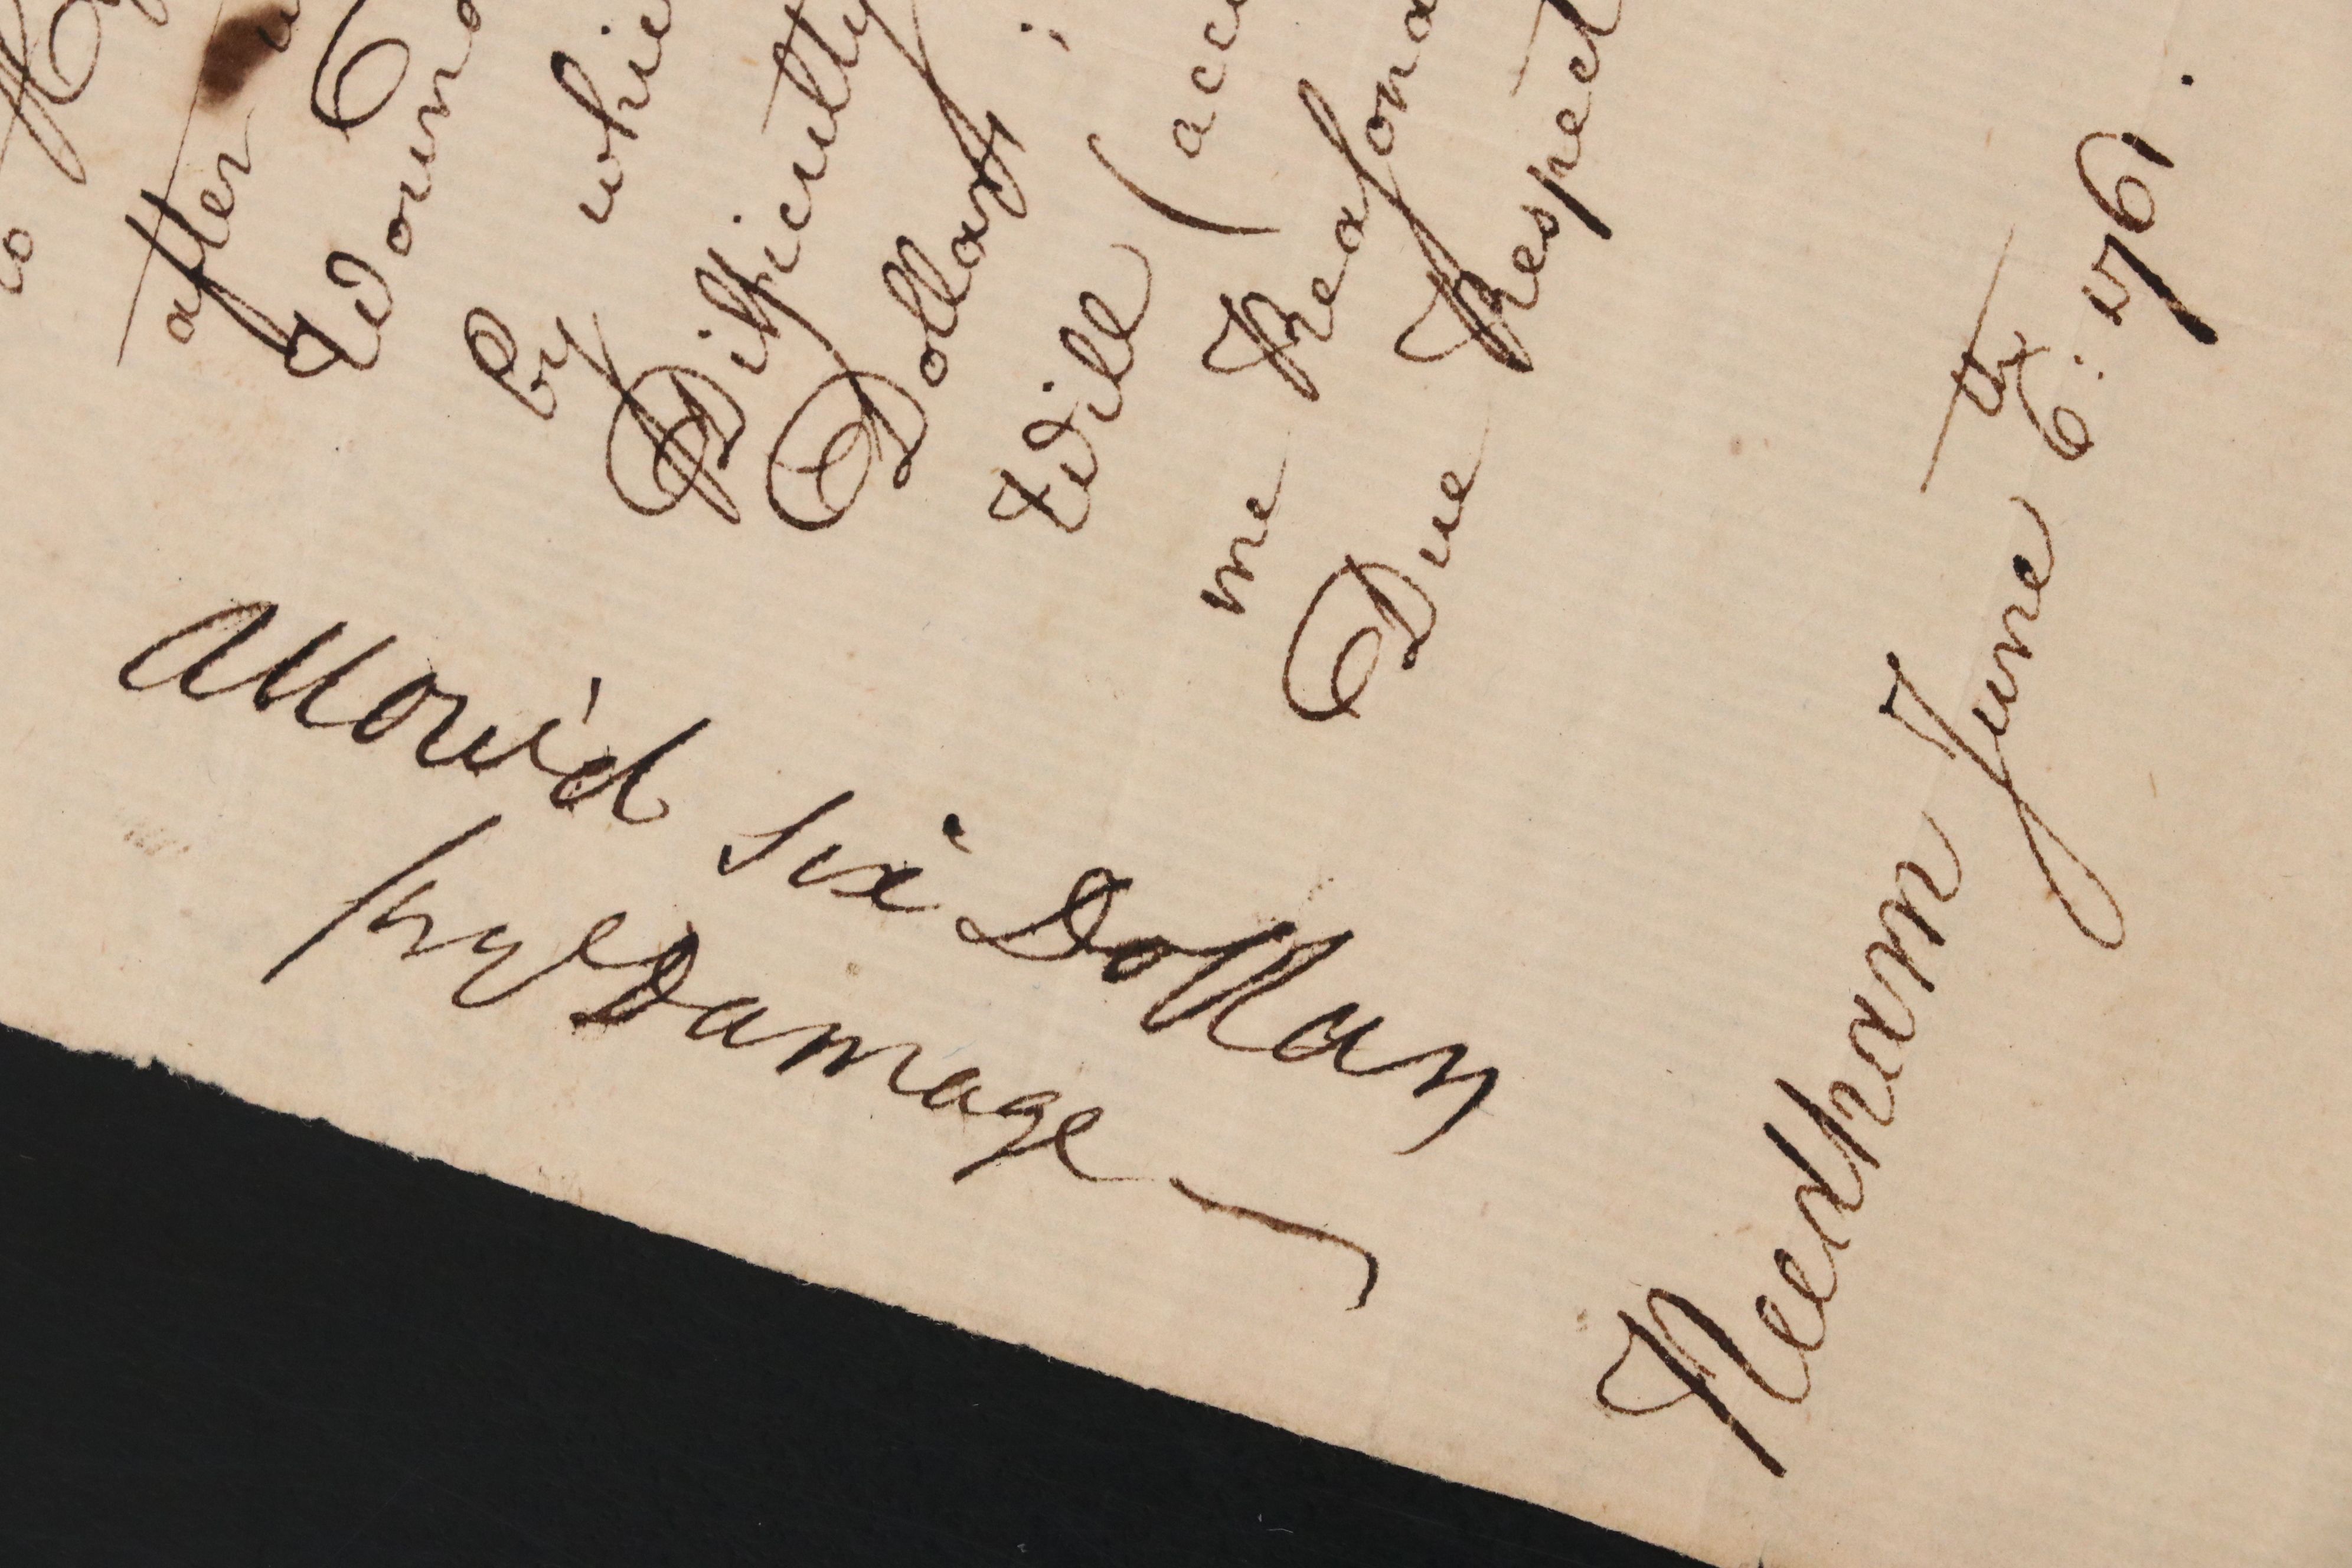 to
after
Wound
By whic
Difficulty
Dollars ;
Will ( acc
me Reasona
Due Respect
Needham June 6th: 1761.
Allow'd six Dollars
for ye Damage